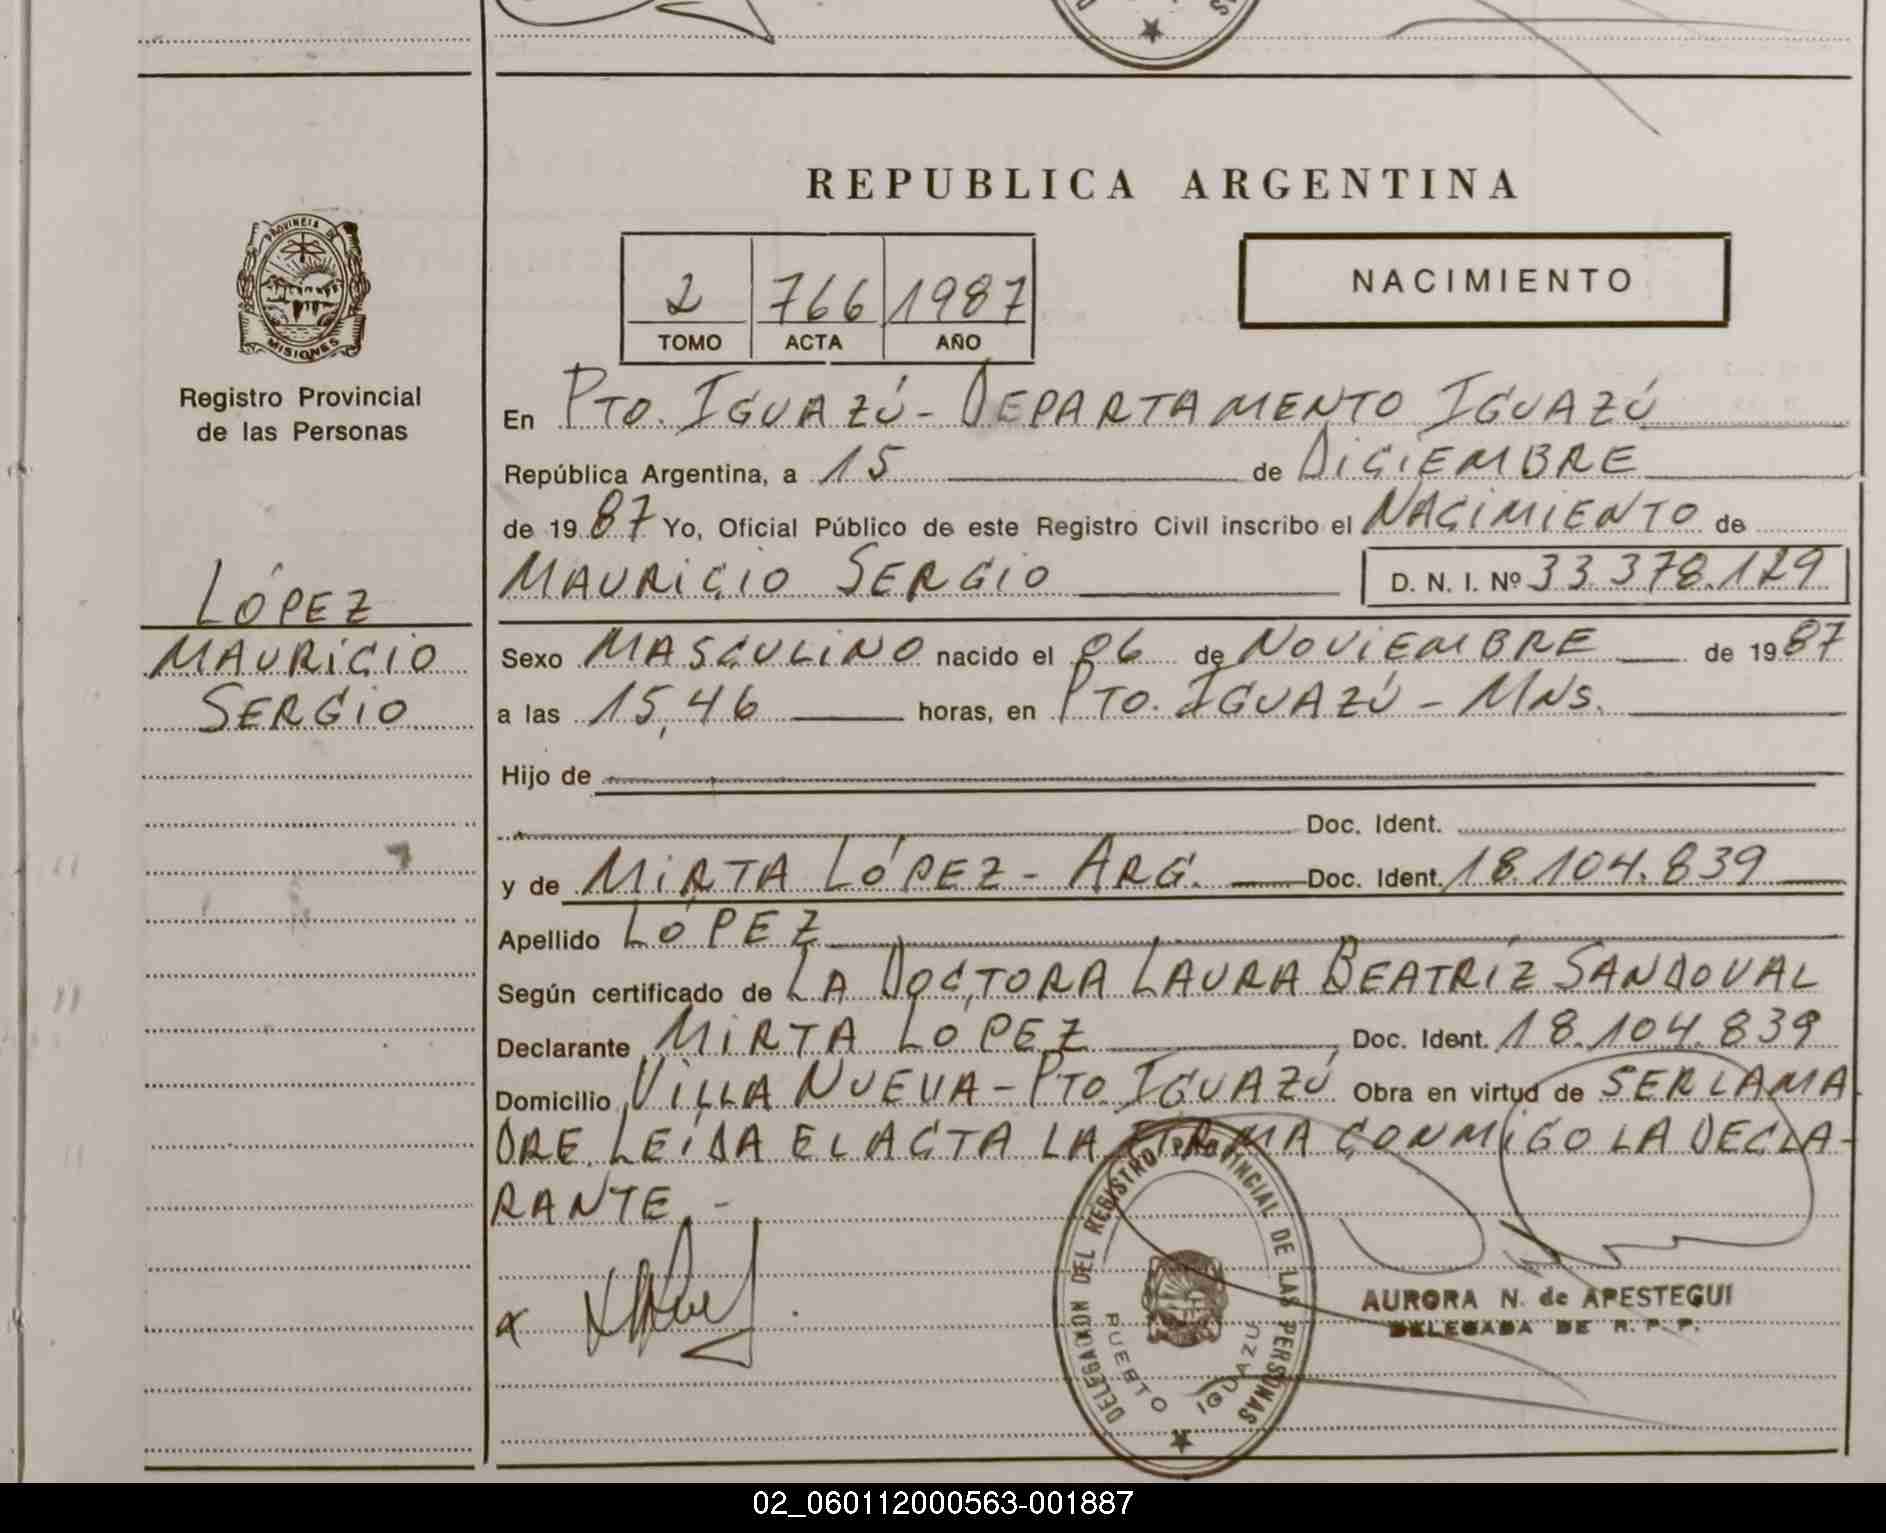 REPUBLICA ARGENTINA
PROVINCIA DE
MISIONES
Registro Provincial
de las Personas
2 766 1987
TOMO ACTA AÑO
NACIMIENTO
En PTO. IGUAZÚ - DEPARTAMENTO IGUAZÚ
República Argentina, a 15 de DICIEMBRE
de 1987 Yo, Oficial Público de este Registro Civil inscribo el NACIMIENTO de
MAURICIO SERGIO D. N. I. Nº 33.378.129
LÓPEZ
MAURICIO
SERGIO
Sexo MASCULINO nacido el 06 de NOVIEMBRE de 1987
a las 15,46 horas, en PTO. IGUAZÚ - MNS.
Hijo de
Doc. Ident.
y de MIRTA LÓPEZ - ARG. Doc. Ident. 18.104.839
Apellido LÓPEZ
Según certificado de LA DOCTORA LAURA BEATRÍZ SANDOVAL
Declarante MIRTA LÓPEZ Doc. Ident. 18.104.839
Domicilio VILLA NUEVA - PTO. IGUAZÚ Obra en virtud de SER LA MA
DRE. LEÍDA EL ACTA LA FIRMA CONMIGO LA DECLA-
RANTE. -
DELEGACION DEL REGISTRO PROVINCIAL DE LAS PERSONAS
PUERTO IGUAZU
AURORA N. de APESTEGUI
DELEGADA DE R. P. P.
02_060112000563-001887